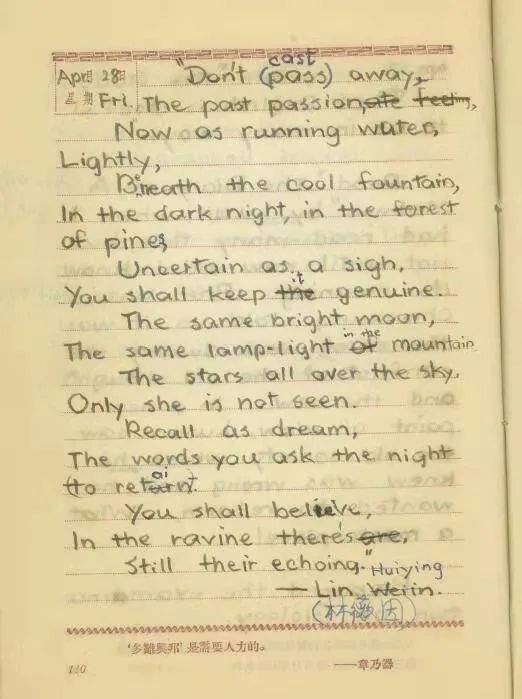 cast
Apr月 28日 "Don't (pass) away,
星期 Fri. The past passion,ate feeling,
Now as running water,
Lightly,
Beneath the cool fountain,
In the dark night, in the forest
of pines,
Uncertain as a sigh,
it
You shall keep the genuine.
The same bright moon,
in the
The same lamp-light of mountain
The stars all over the sky,
Only she is not seen.
Recall as dream,
The words you ask the night
ai
(to return).
You shall believe,
In the ravine there's are,
Still their echoing."
Huiying
— Lin Weiin.
(林徽因)
'多難興邦' 是需要人力的。
120 ——章乃器